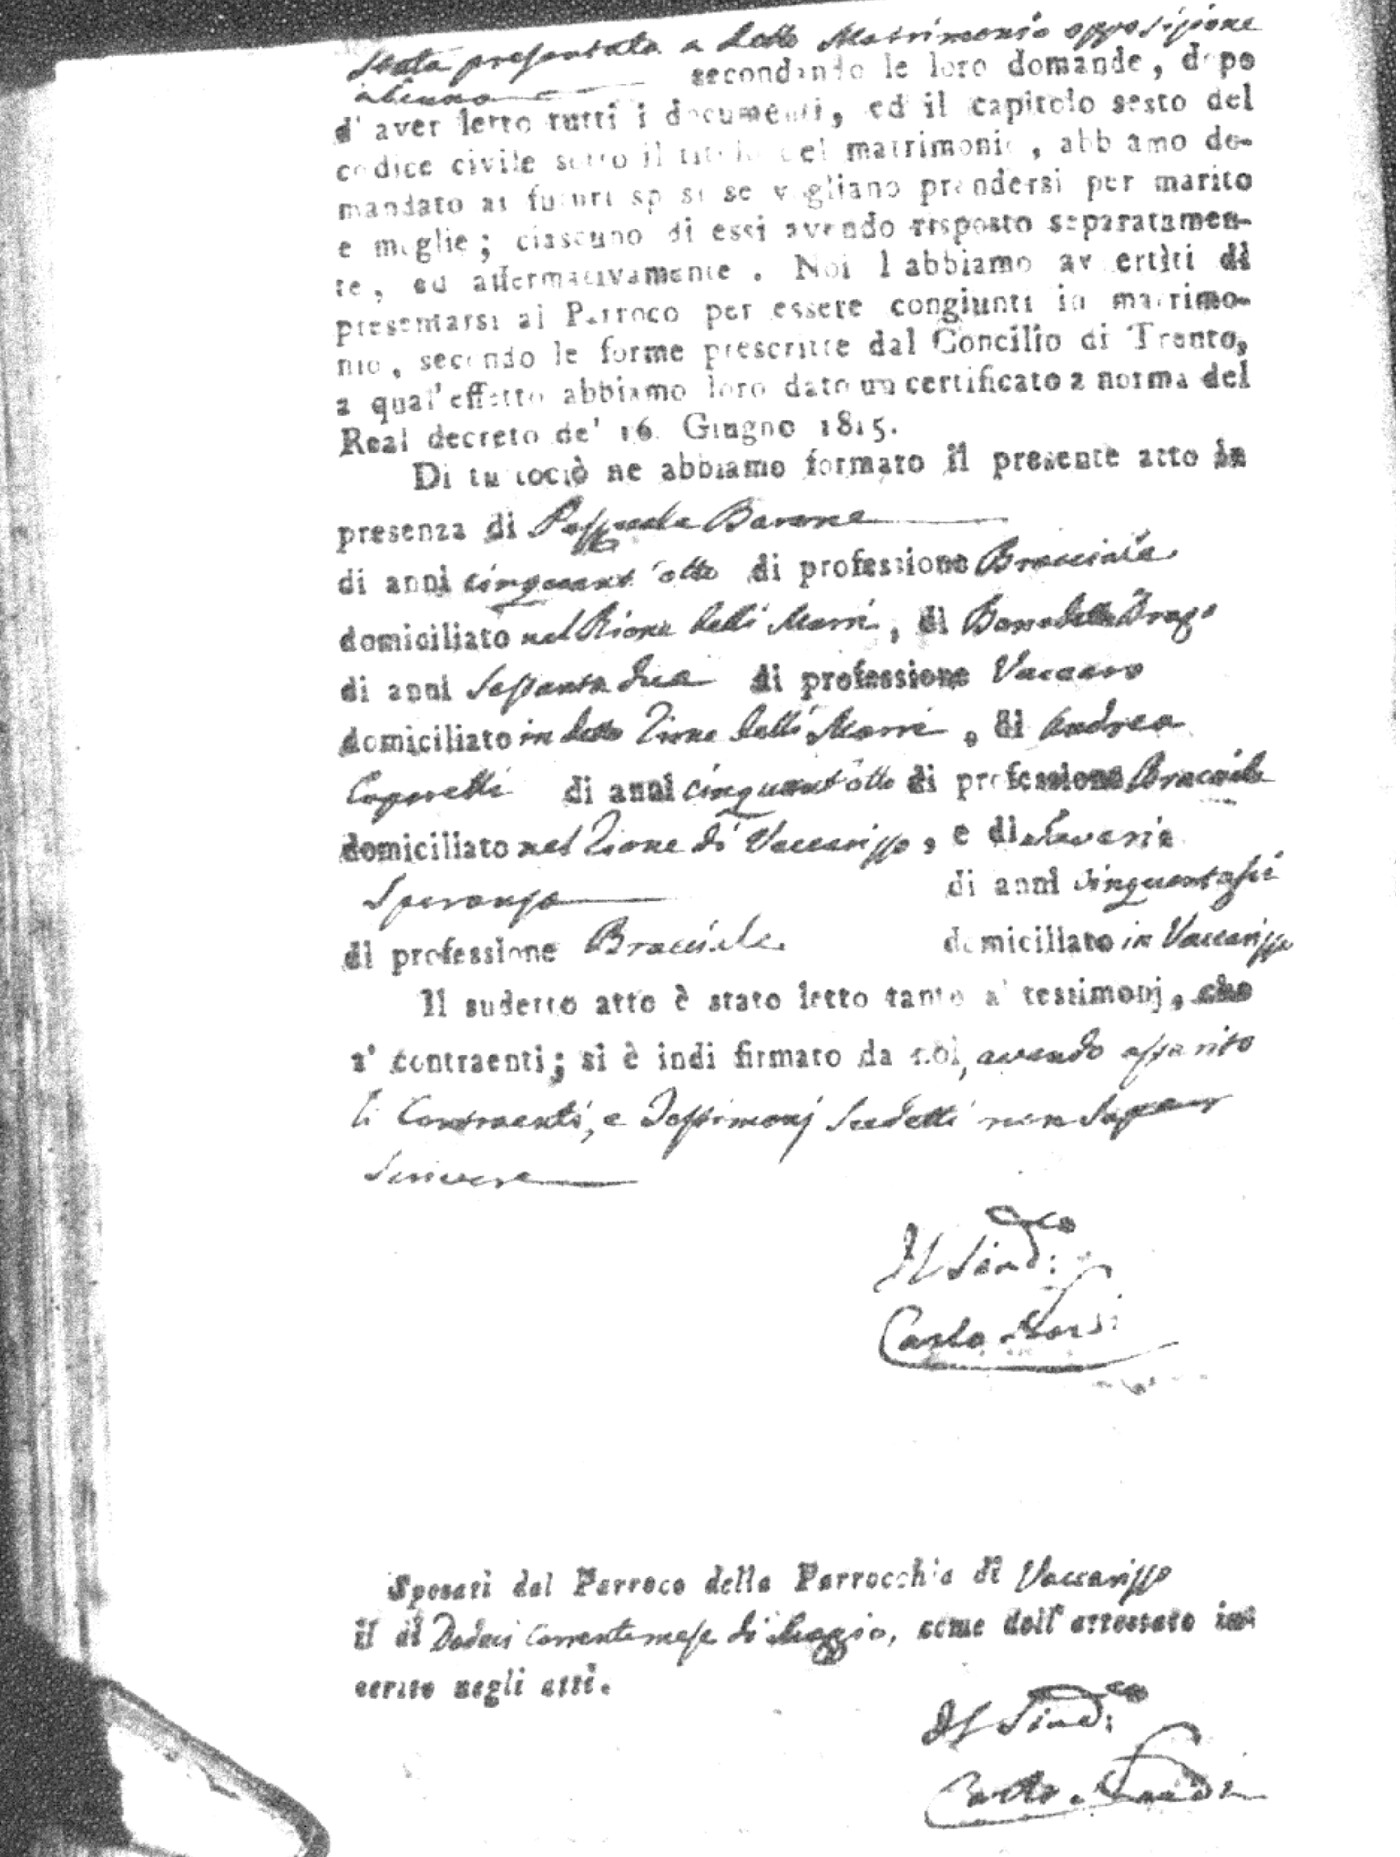 stata presentata a detto Matrimonio opposizione
alcuna secondando le loro domande, dopo
d'aver letto tutti i documenti, ed il capitolo sesto del
codice civile sotto il titolo del matrimonio, abbiamo do-
mandato ai futuri sposi se vogliano prendersi per marito
e moglie; ciascuno di essi avendo risposto separatamen-
te, ed affermativamente. Noi l abbiamo avvertiti di
presentarsi al Parroco per essere congiunti in matrimo-
nio, secondo le forme prescritte dal Concilio di Trento,
a qual'effetto abbiamo loro dato un certificato a norma del
Real decreto de' 16 Giugno 1815.
Di tuttociò ne abbiamo formato il presente atto in
presenza di Pasquale Barone
di anni cinquant'otto di professione Bracciale
domiciliato nel Rione delli Marri, di Benedetto Drago
di anni sessanta due di professione Vaccaro
domiciliato in detto Rione delli Marri, di Andrea
di anni cinquant'otto di professione Bracciale
domiciliato nel Rione di Vaccarisso, e di Saverio
Speranza di anni cinquantasei
di professione Bracciale domiciliato in Vaccarisso
Il sudetto atto è stato letto tanto a' testimonj, che
a' contraenti; si è indi firmato da noi, avendo asserito
li Contraenti, e Testimonj sudetti non sapere
scrivere
Il Sind.co
Carlo
Sposati dal Parroco della Parrocchia di Vaccarisso
il di Dodeci corrente mese di Maggio, come dall'attestato in-
serito negli atti.
Il Sind.co
Carlo